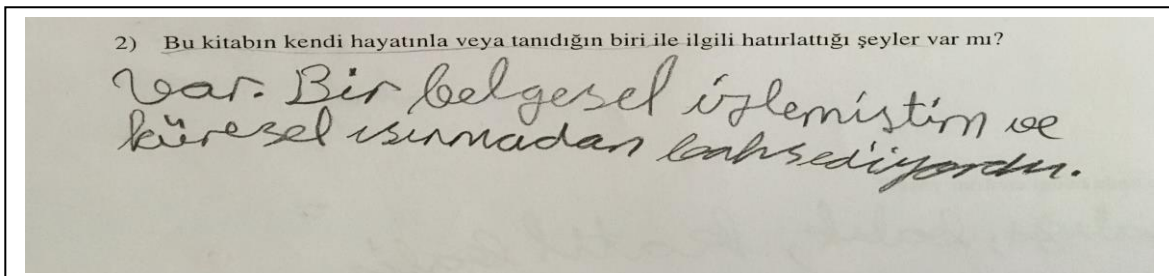 2) Bu kitabın kendi hayatınla veya tanıdığın biri ile ilgili hatırlattığı şeyler var mı?
Var. Bir belgesel izlemiştim ve
küresel ısınmadan bahsediyordu.